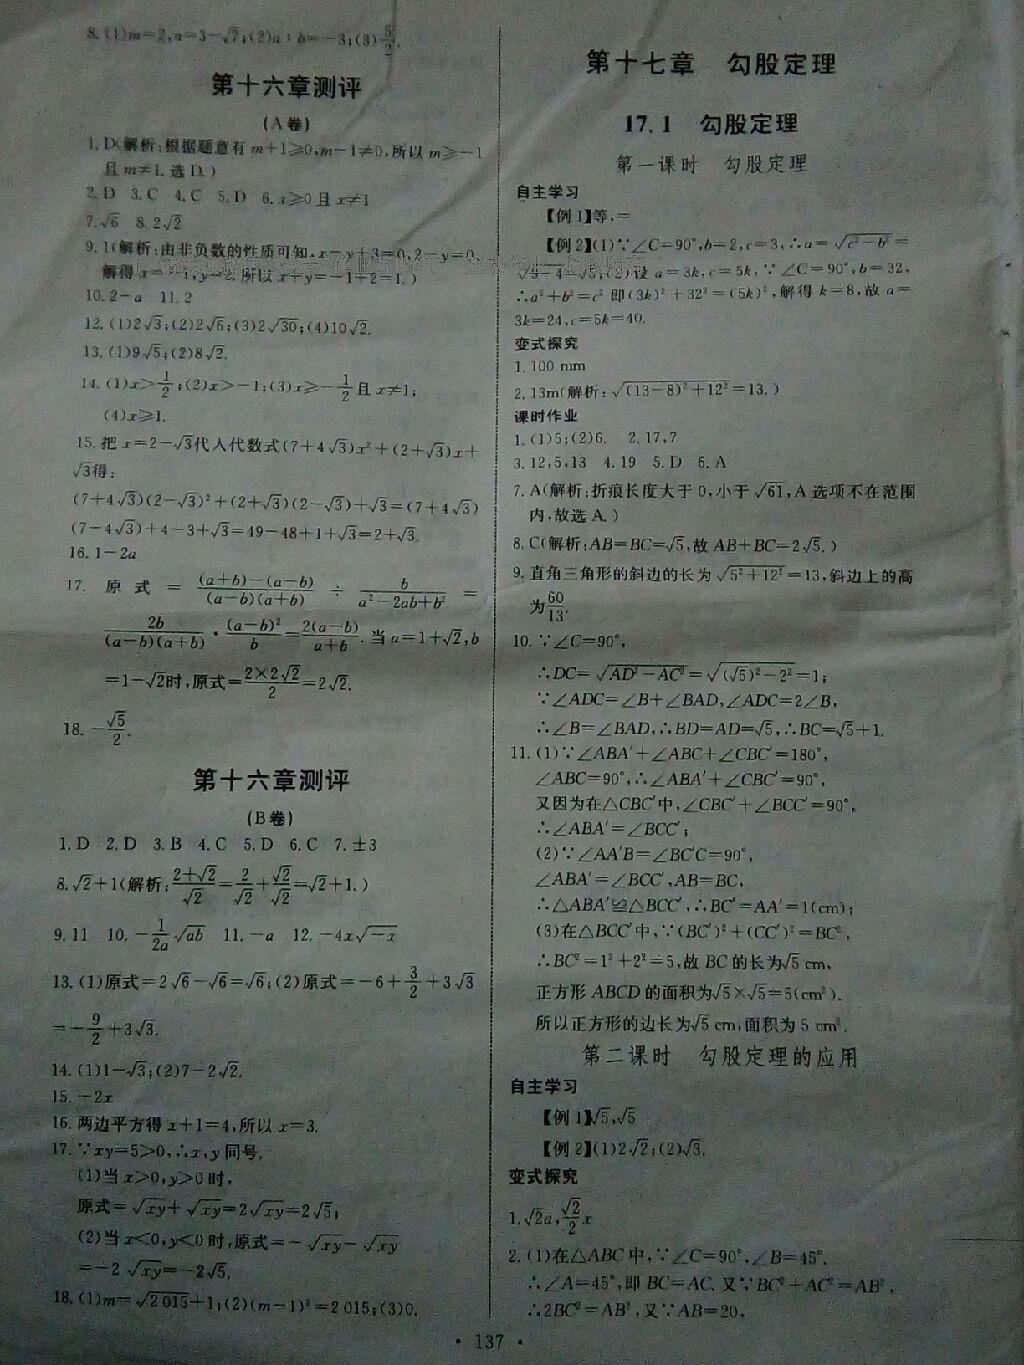 8.(1)m=2,a=3-√7;(2)a:b=-3;(3)5/2.
第十六章测评
(A卷)
1.D(解析:根据题意有m+1⩾0,m-1≠0,所以m⩾-1
且m≠1.选D.)
2.D 3.C 4.C 5.D 6.x⩾0且x≠1
7.√6 8.2√2
9.1(解析:由非负数的性质可知,x-y+3=0,2-y=0,
解得x=-1,y=2.所以x+y=-1+2=1.)
10.2-a 11.2
12.(1)2√3;(2)2√6;(3)2√30;(4)10√2.
13.(1)9√5;(2)8√2.
14.(1)x>1/2;(2)x>-1;(3)x⩾-1/2且x≠1;
(4)x⩾1.
15.把x=2-√3代人代数式(7+4√3)x²+(2+√3)x+
√3得:
(7+4√3)(2-√3)²+(2+√3)(2-√3)+√3=(7+4√3)
(7-4√3)+4-3+√3=49-48+1+√3=2+√3.
16.1-2a
17. 原式=((a+b)-(a-b))/((a-b)(a+b))÷b/(a²-2ab+b²)=
2b/((a-b)(a+b))·(a-b)²/b=2(a-b)/(a+b).当a=1+√2,b
=1-√2时,原式=(2×2√2)/2=2√2.
18.-√5/2.
第十六章测评
(B卷)
1.D 2.D 3.B 4.C 5.D 6.C 7.±3
8.√2+1(解析:(2+√2)/√2=2/√2+√2/√2=√2+1.)
9.11 10.-1/(2a)√ab 11.-a 12.-4x√-x
13.(1)原式=2√6-√6=√6;(2)原式=-6+3/2+3√3
=-9/2+3√3.
14.(1)1-√3;(2)7-2√2.
15.-2x
16.两边平方得x+1=4,所以x=3.
17.∵xy=5>0,∴x,y同号.
(1)当x>0,y>0时,
原式=√xy+√xy=2√xy=2√5;
(2)当x<0,y<0时,原式=-√xy-√xy
=-2√xy=-2√5.
18.(1)m=√2 015+1;(2)(m-1)²=2 015;(3)0.
第十七章 勾股定理
17.1 勾股定理
第一课时 勾股定理
自主学习
【例1】等,=
【例2】(1)∵∠C=90°,b=2,c=3,∴a=√(c²-b²)=
√(9-4)=√5;(2)设a=3k,c=5k,∵∠C=90°,b=32,
∴a²+b²=c²即(3k)²+32²=(5k)²,解得k=8,故a=
3k=24,c=5k=40.
变式探究
1.100 mm
2.13m(解析:√((13-8)²+12²)=13.)
课时作业
1.(1)5;(2)6. 2.17,7
3.12,5,13 4.19 5.D 6.A
7.A(解析:折痕长度大于0,小于√61,A选项不在范围
内,故选A.)
8.C(解析:AB=BC=√5,故AB+BC=2√5.)
9.直角三角形的斜边的长为√(5²+12²)=13,斜边上的高
为60/13.
10.∵∠C=90°,
∴DC=√(AD²-AC²)=√((√5)²-2²)=1;
∵∠ADC=∠B+∠BAD,∠ADC=2∠B,
∴∠B=∠BAD,∴BD=AD=√5,∴BC=√5+1.
11.(1)∵∠ABA′+∠ABC+∠CBC′=180°,
∠ABC=90°,∴∠ABA′+∠CBC′=90°,
又因为在△CBC′中,∠CBC′+∠BCC′=90°,
∴∠ABA′=∠BCC′;
(2)∵∠AA′B=∠BC′C=90°,
∠ABA′=∠BCC′,AB=BC,
∴△ABA′≌△BCC′,∴BC′=AA′=1(cm);
(3)在△BCC′中,∵(BC′)²+(CC′)²=BC²,
∴BC²=1²+2²=5,故BC的长为√5 cm,
正方形ABCD的面积为√5×√5=5(cm²).
所以正方形的边长为√5 cm,面积为5 cm².
第二课时 勾股定理的应用
自主学习
【例1】√5,√5
【例2】(1)2√2;(2)√3.
变式探究
1.√2a,√2/2x
2.(1)在△ABC中,∵∠C=90°,∠B=45°.
∴∠A=45°,即BC=AC.又∵BC²+AC²=AB²,
∴2BC²=AB²,又∵AB=20,
• 137 •